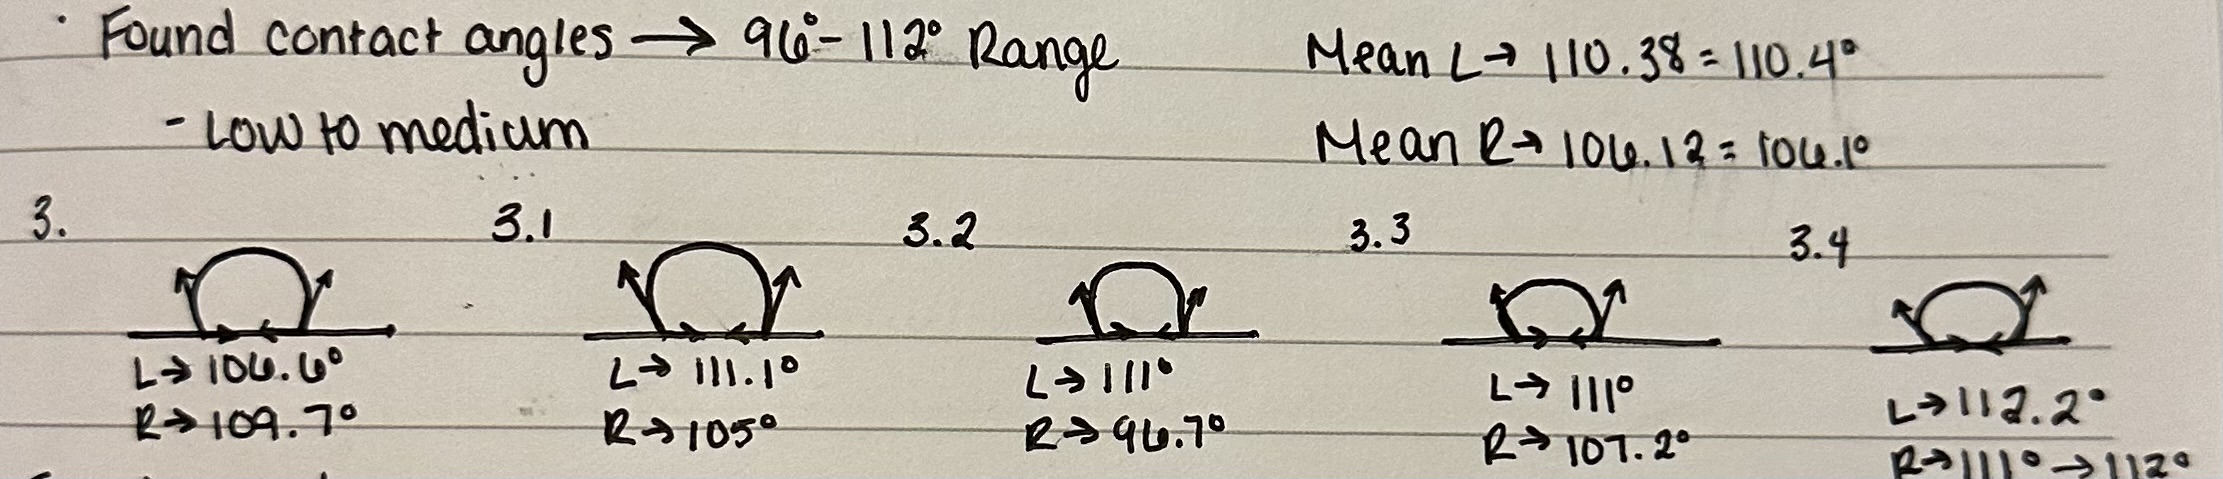 · Found contact angles → 96° - 112° Range
Mean L → 110.38 = 110.4°
- Low to medium
Mean R → 106.12 = 106.1°
3.
3.1
3.2
3.3
3.4
L → 106.6°
R → 109.7°
L → 111.1°
R → 105°
L → 111°
R → 96.7°
L → 111°
R → 107.2°
L → 112.2°
R → 111° → 112°